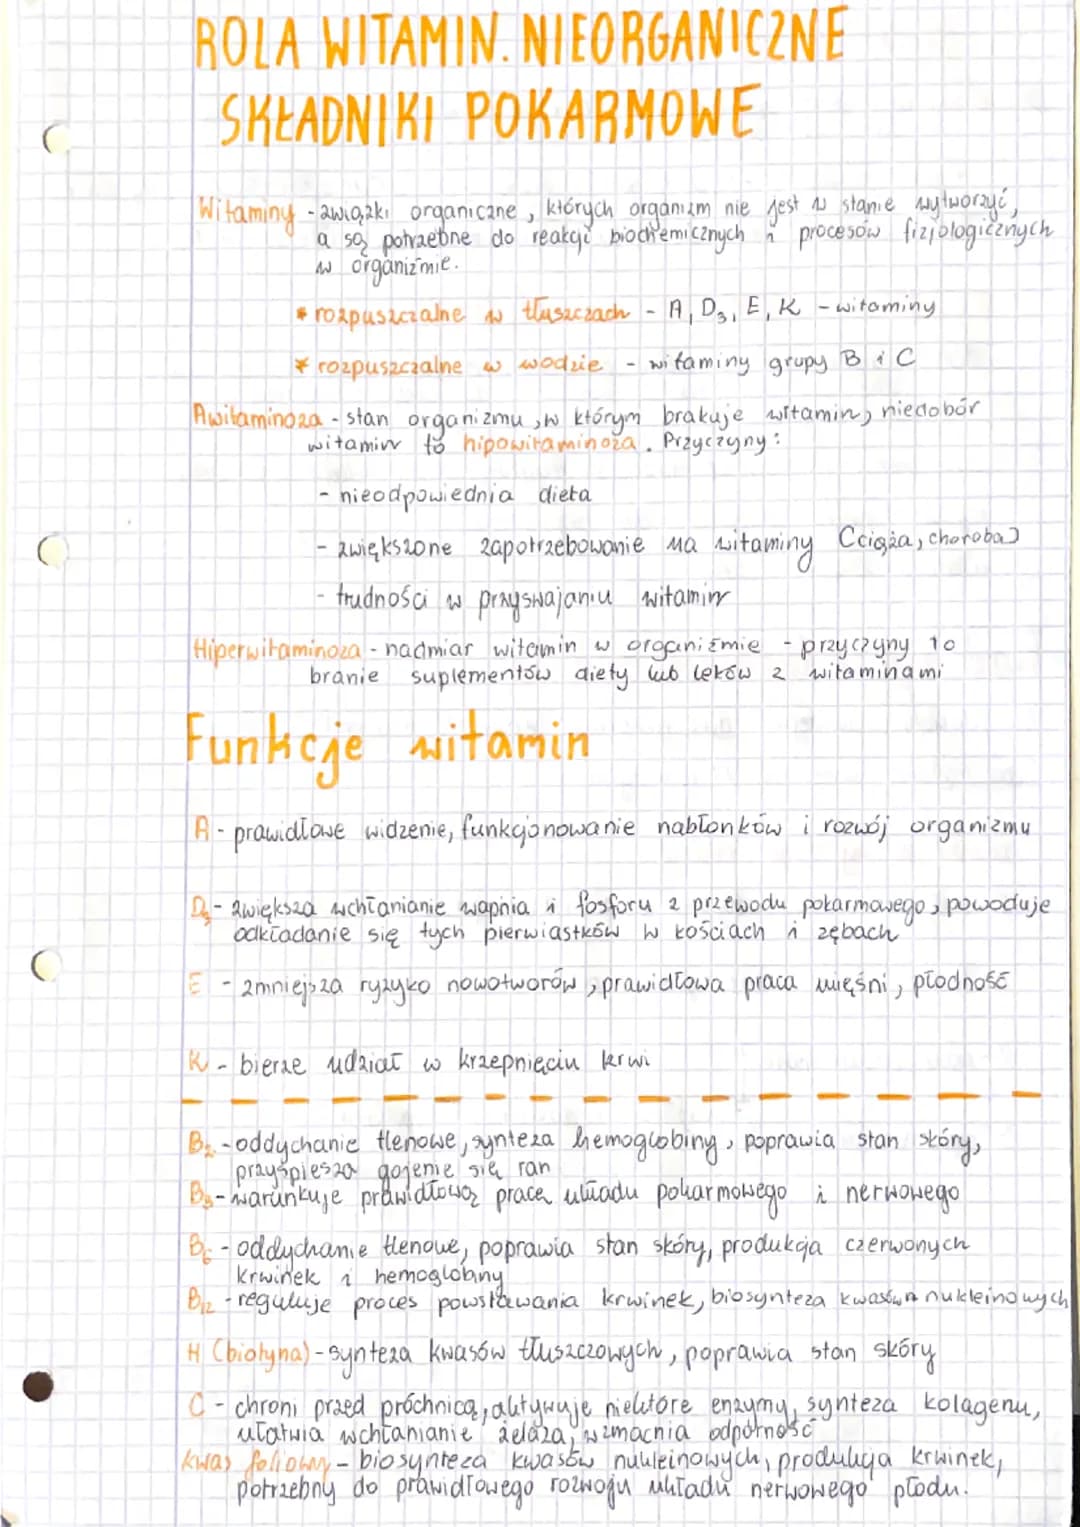 ROLA WITAMIN. NIEORGANICZNE
SKŁADNIKI POKARMOWE
Witaminy - związki organiczne, których organizm nie jest w stanie wytworzyć,
a są potrzebne do reakcji biochemicznych i procesów fizjologicznych
w organizmie.
* rozpuszczalne w tłuszczach - A, D3, E, K - witaminy
* rozpuszczalne w wodzie - witaminy grupy B i C
Awitaminoza - stan organizmu, w którym brakuje witamin, niedobór
witamin to hipowitaminoza. Przyczyny:
- nieodpowiednia dieta
- zwiększone zapotrzebowanie na witaminy (ciąża, choroba)
- trudności w przyswajaniu witamin
Hiperwitaminoza - nadmiar witamin w organiźmie - przyczyny to
branie suplementów diety lub leków z witaminami
Funkcje witamin
A - prawidłowe widzenie, funkcjonowanie nabłonków i rozwój organizmu
D3 - zwiększa wchłanianie wapnia i fosforu z przewodu pokarmowego, powoduje
odkładanie się tych pierwiastków w kościach i zębach
E - zmniejsza ryzyko nowotworów, prawidłowa praca mięśni, płodność
K - bierze udział w krzepnięciu krwi
B2 - oddychanie tlenowe, synteza hemoglobiny, poprawia stan skóry,
przyśpiesza gojenie się ran
B3 - warunkuje prawidłową pracę układu pokarmowego i nerwowego
B6 - oddychanie tlenowe, poprawia stan skóry, produkcja czerwonych
krwinek i hemoglobiny
B12 - reguluje proces powstawania krwinek, biosynteza kwasów nukleinowych
H (biotyna) - synteza kwasów tłuszczowych, poprawia stan skóry
C - chroni przed próchnicą, aktywuje niektóre enzymy, synteza kolagenu,
ułatwia wchłanianie żelaza, wzmacnia odporność
kwas foliowy - biosynteza kwasów nukleinowych, produkcja krwinek,
potrzebny do prawidłowego rozwoju układu nerwowego płodu.